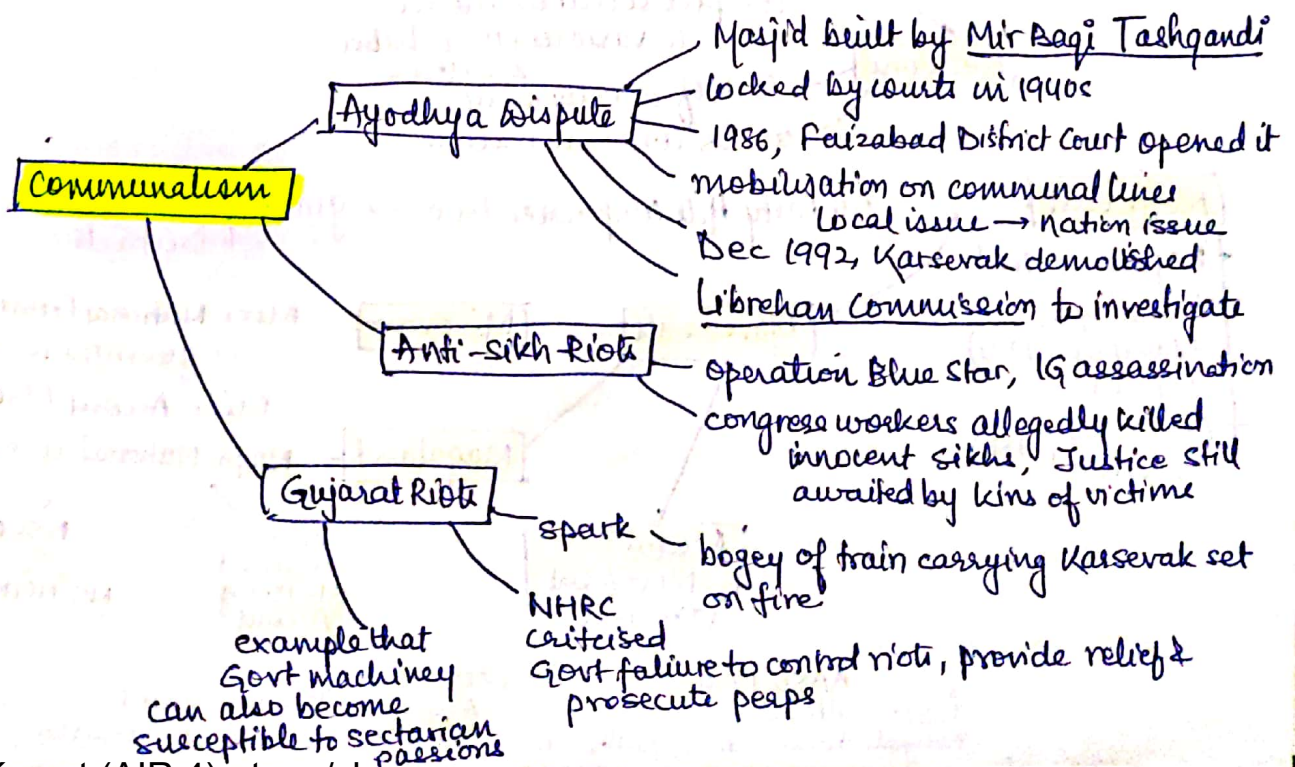 Communalism
Ayodhya Dispute
Masjid built by Mir Baqi Tashqandi
locked by courts in 1940s
1986, Faizabad District Court opened it
mobilisation on communal lines
Local issue → nation issue
Dec 1992, Karsevak demolished
Librehan Commission to investigate
Anti-Sikh Riots
operation Blue Star, IG assassination
congress workers allegedly killed
innocent Sikhs, Justice still
awaited by kins of victims
Gujarat Riots
spark
bogey of train carrying Karsevak set
on fire
NHRC
critcised
Govt faliure to control riots, provide relief &
prosecute perps
example that
Govt machiney
can also become
susceptible to sectarian
passions
(AIR 4)